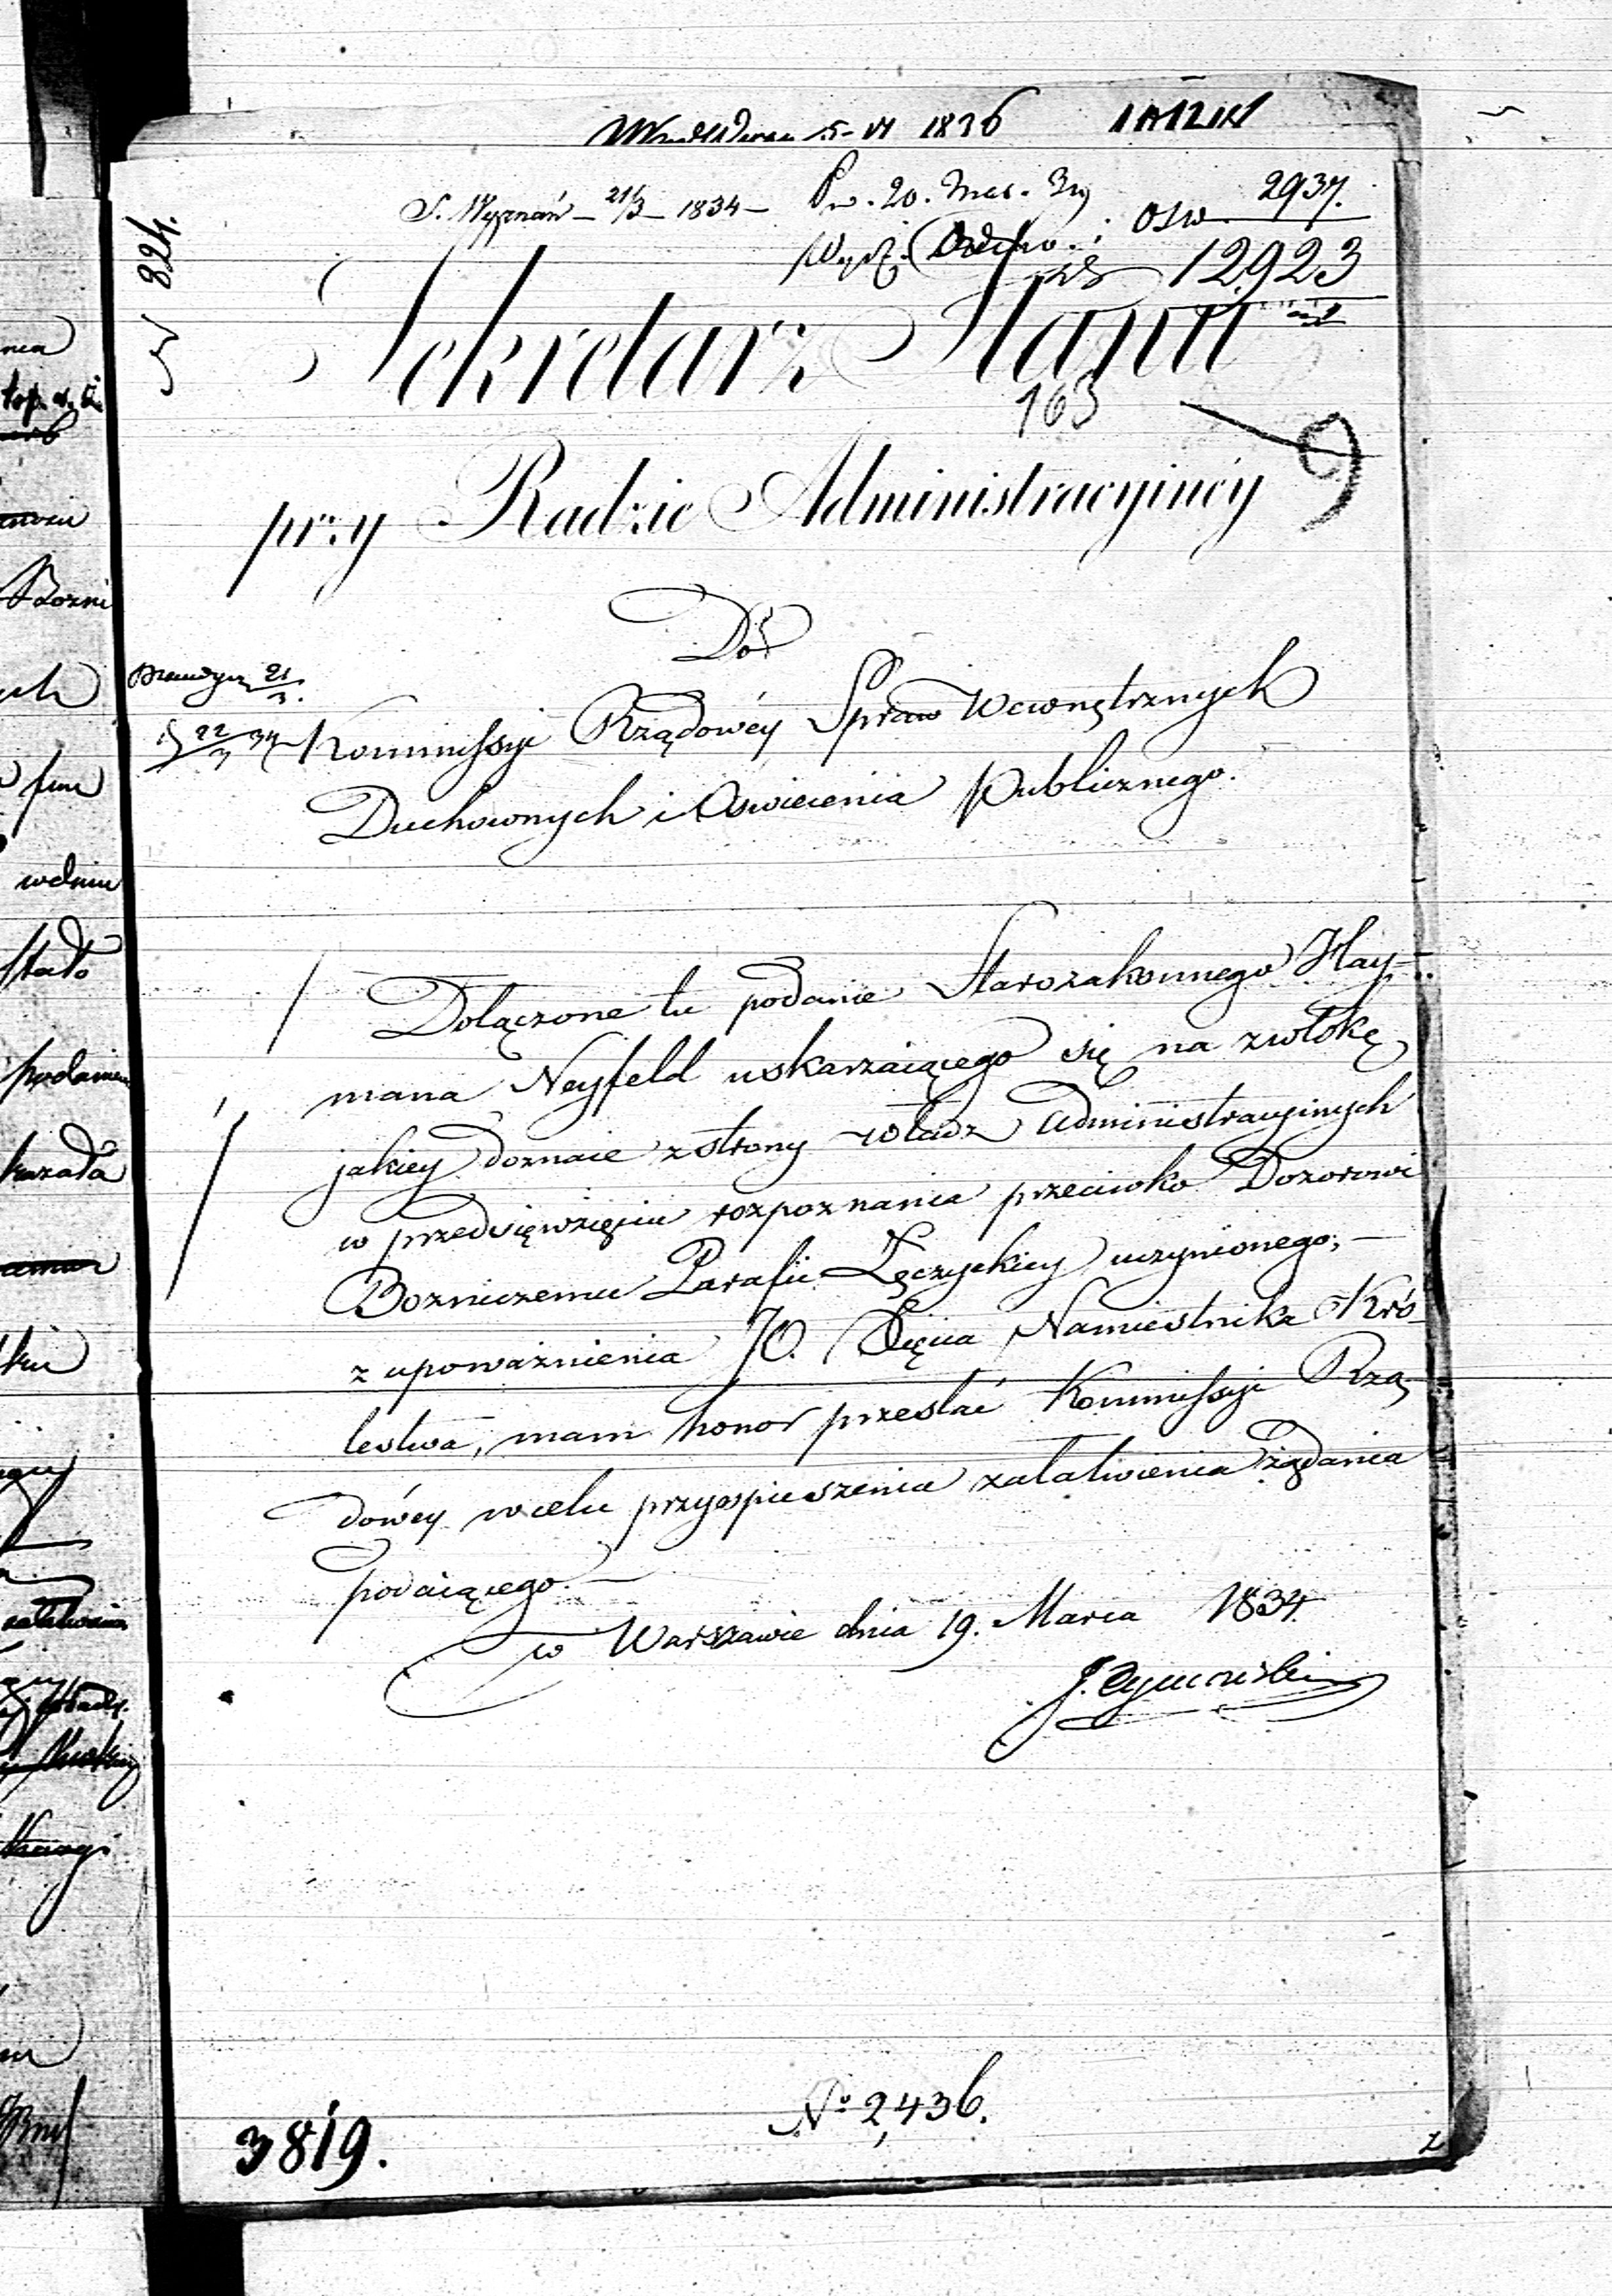 5 - VI 1836
S. Wyznań - 21/3 - 1834 - Pr. 20. Mar.
Wydz. Osw. 2937.
12923
N 824.
Sekretarz Stanu
163
przy Radzie Administracyinéy
Do
21/3.
22/3 34
Kommissyi Rządowéy Spraw Wewnętrznych
Duchownych i Oswiecenia Publicznego.
Dołączone tu podanie Starozakonnego Hay-
mana Neyfeld uskarzaiącego się na zwłokę
jakiey doznaie z strony władz Administracyinych
w przedsięwzięciu rozpoznania przeciwko Dozorowi
Bozniczemu Parafii Łęczyckiey uczynionego, —
z upoważnienia JO. Xięcia Namiestnika Kró-
lestwa, mam honor przesłać Kommissyi Rzą-
dowéy w celu przyspieszenia załatwienia żądania
podaiącego. —
w Warszawie dnia 19. Marca 1834.
No 2,436.
3819.